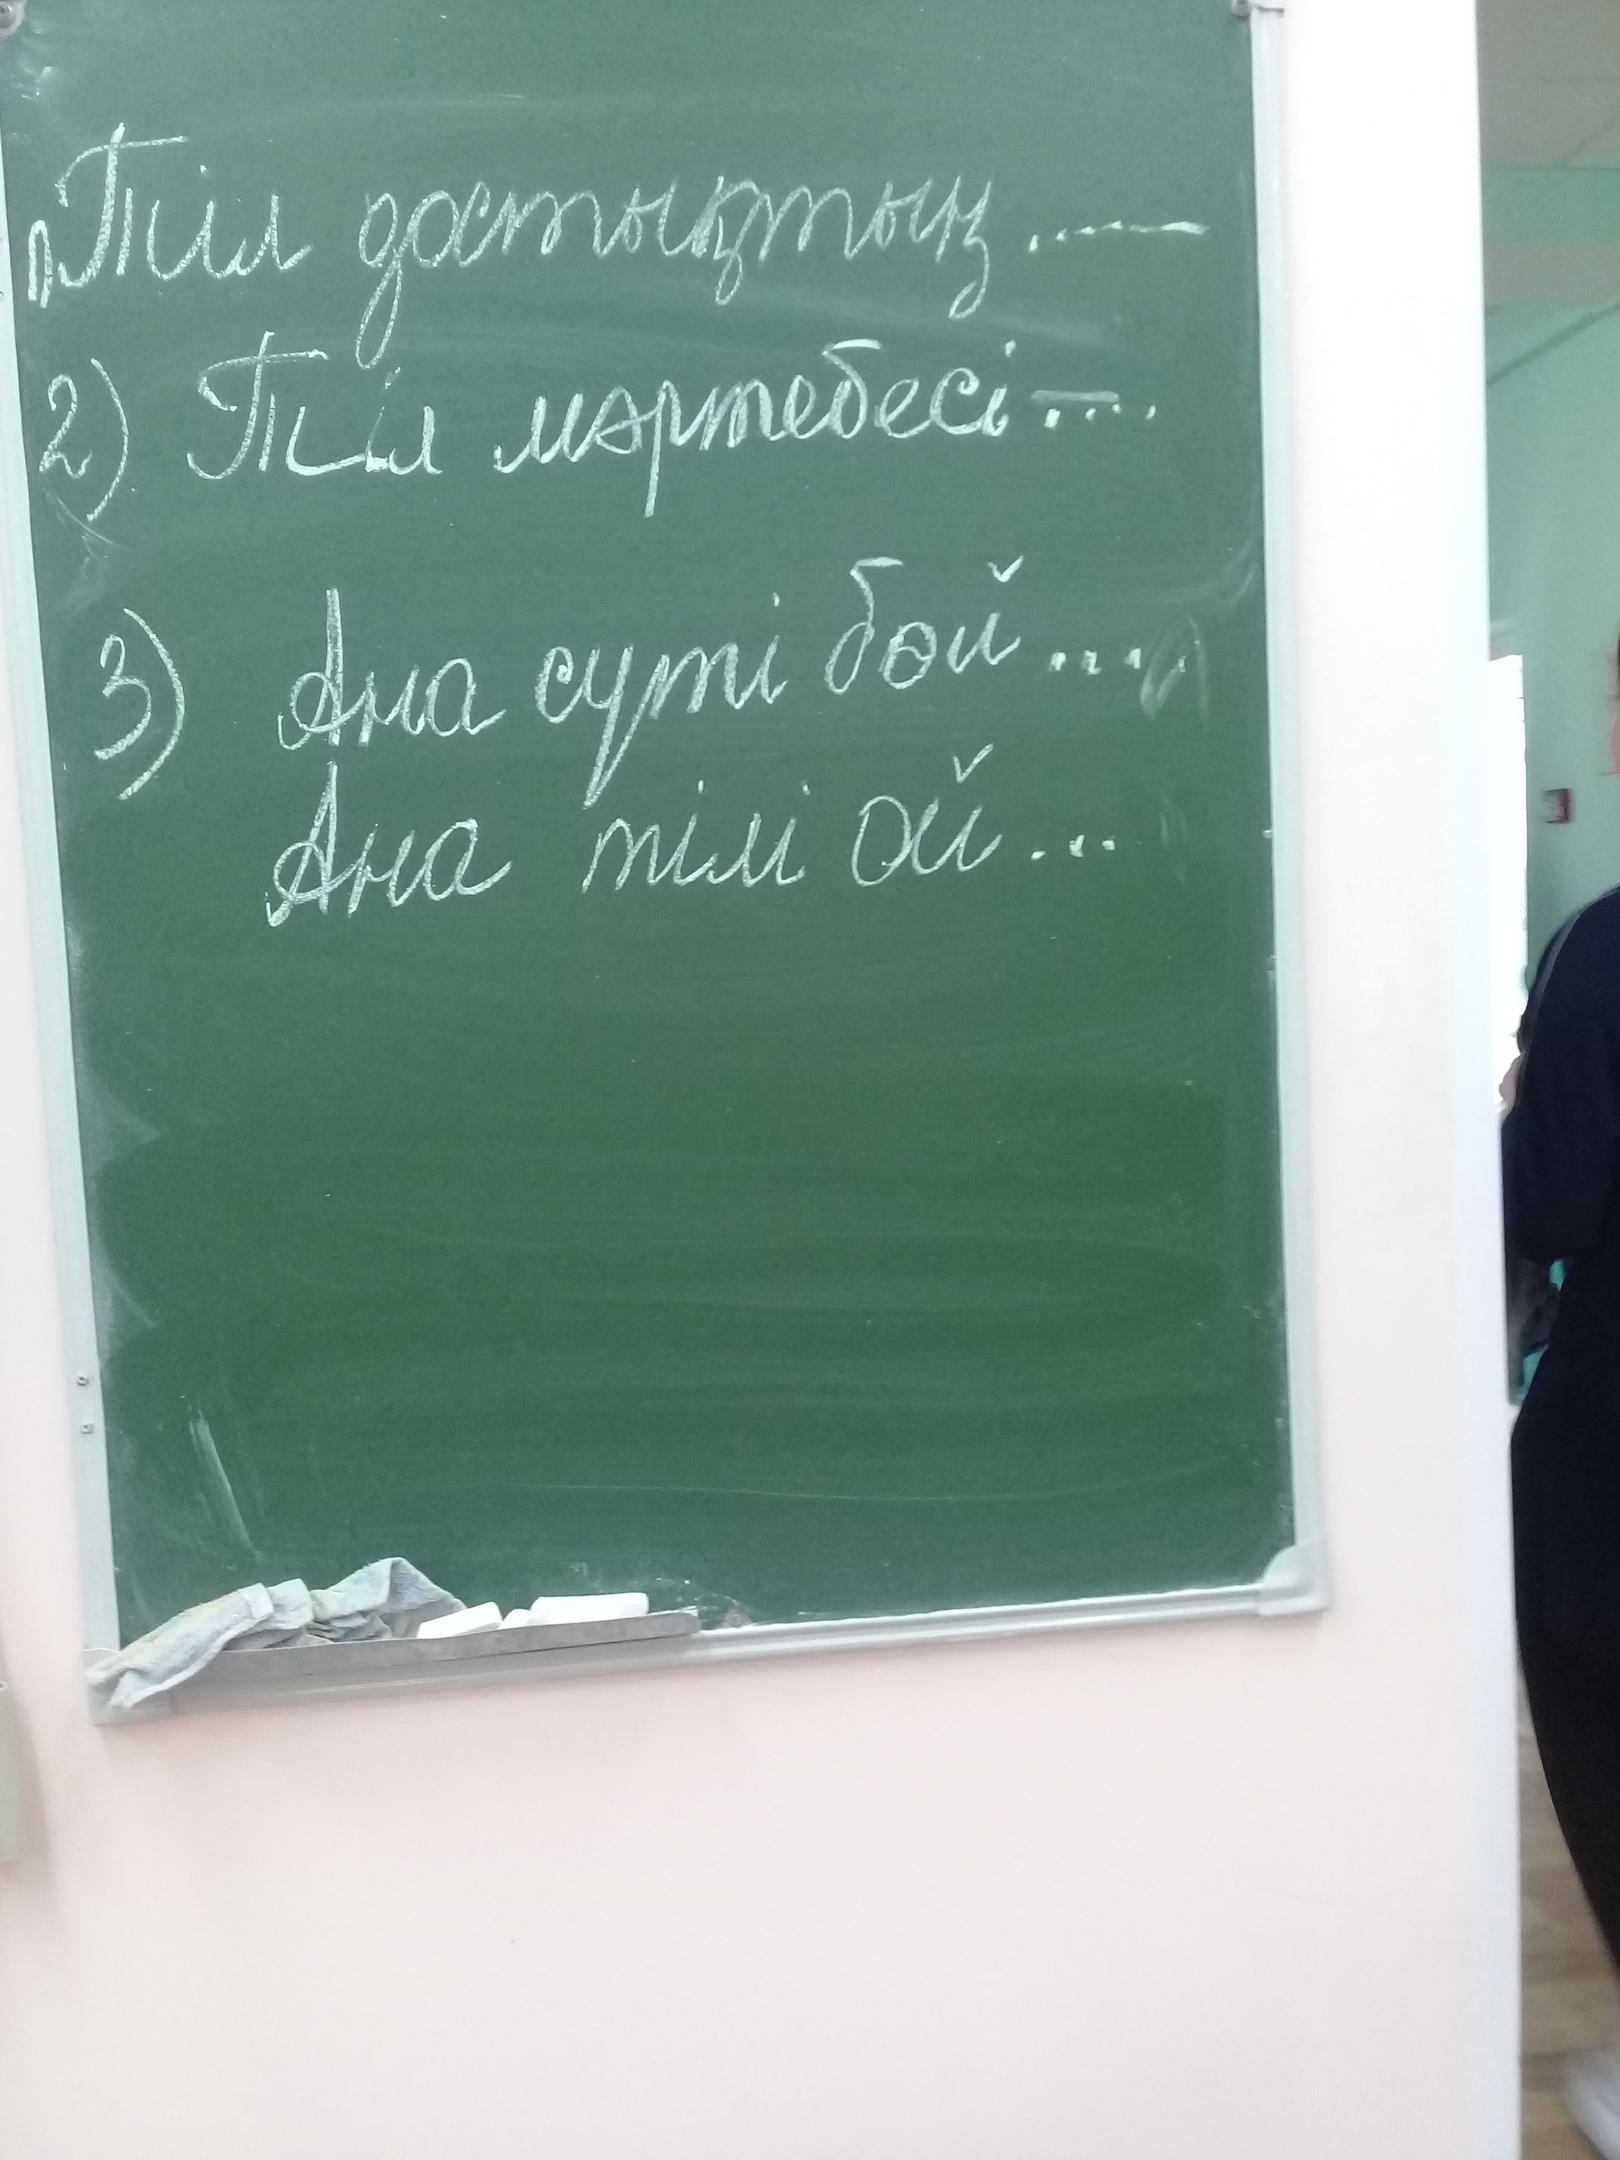 1) Тіл достықтың ......
2) Тіл мәртебесі — ....
3) Ана суті бой ....
Ана тілі ой ...